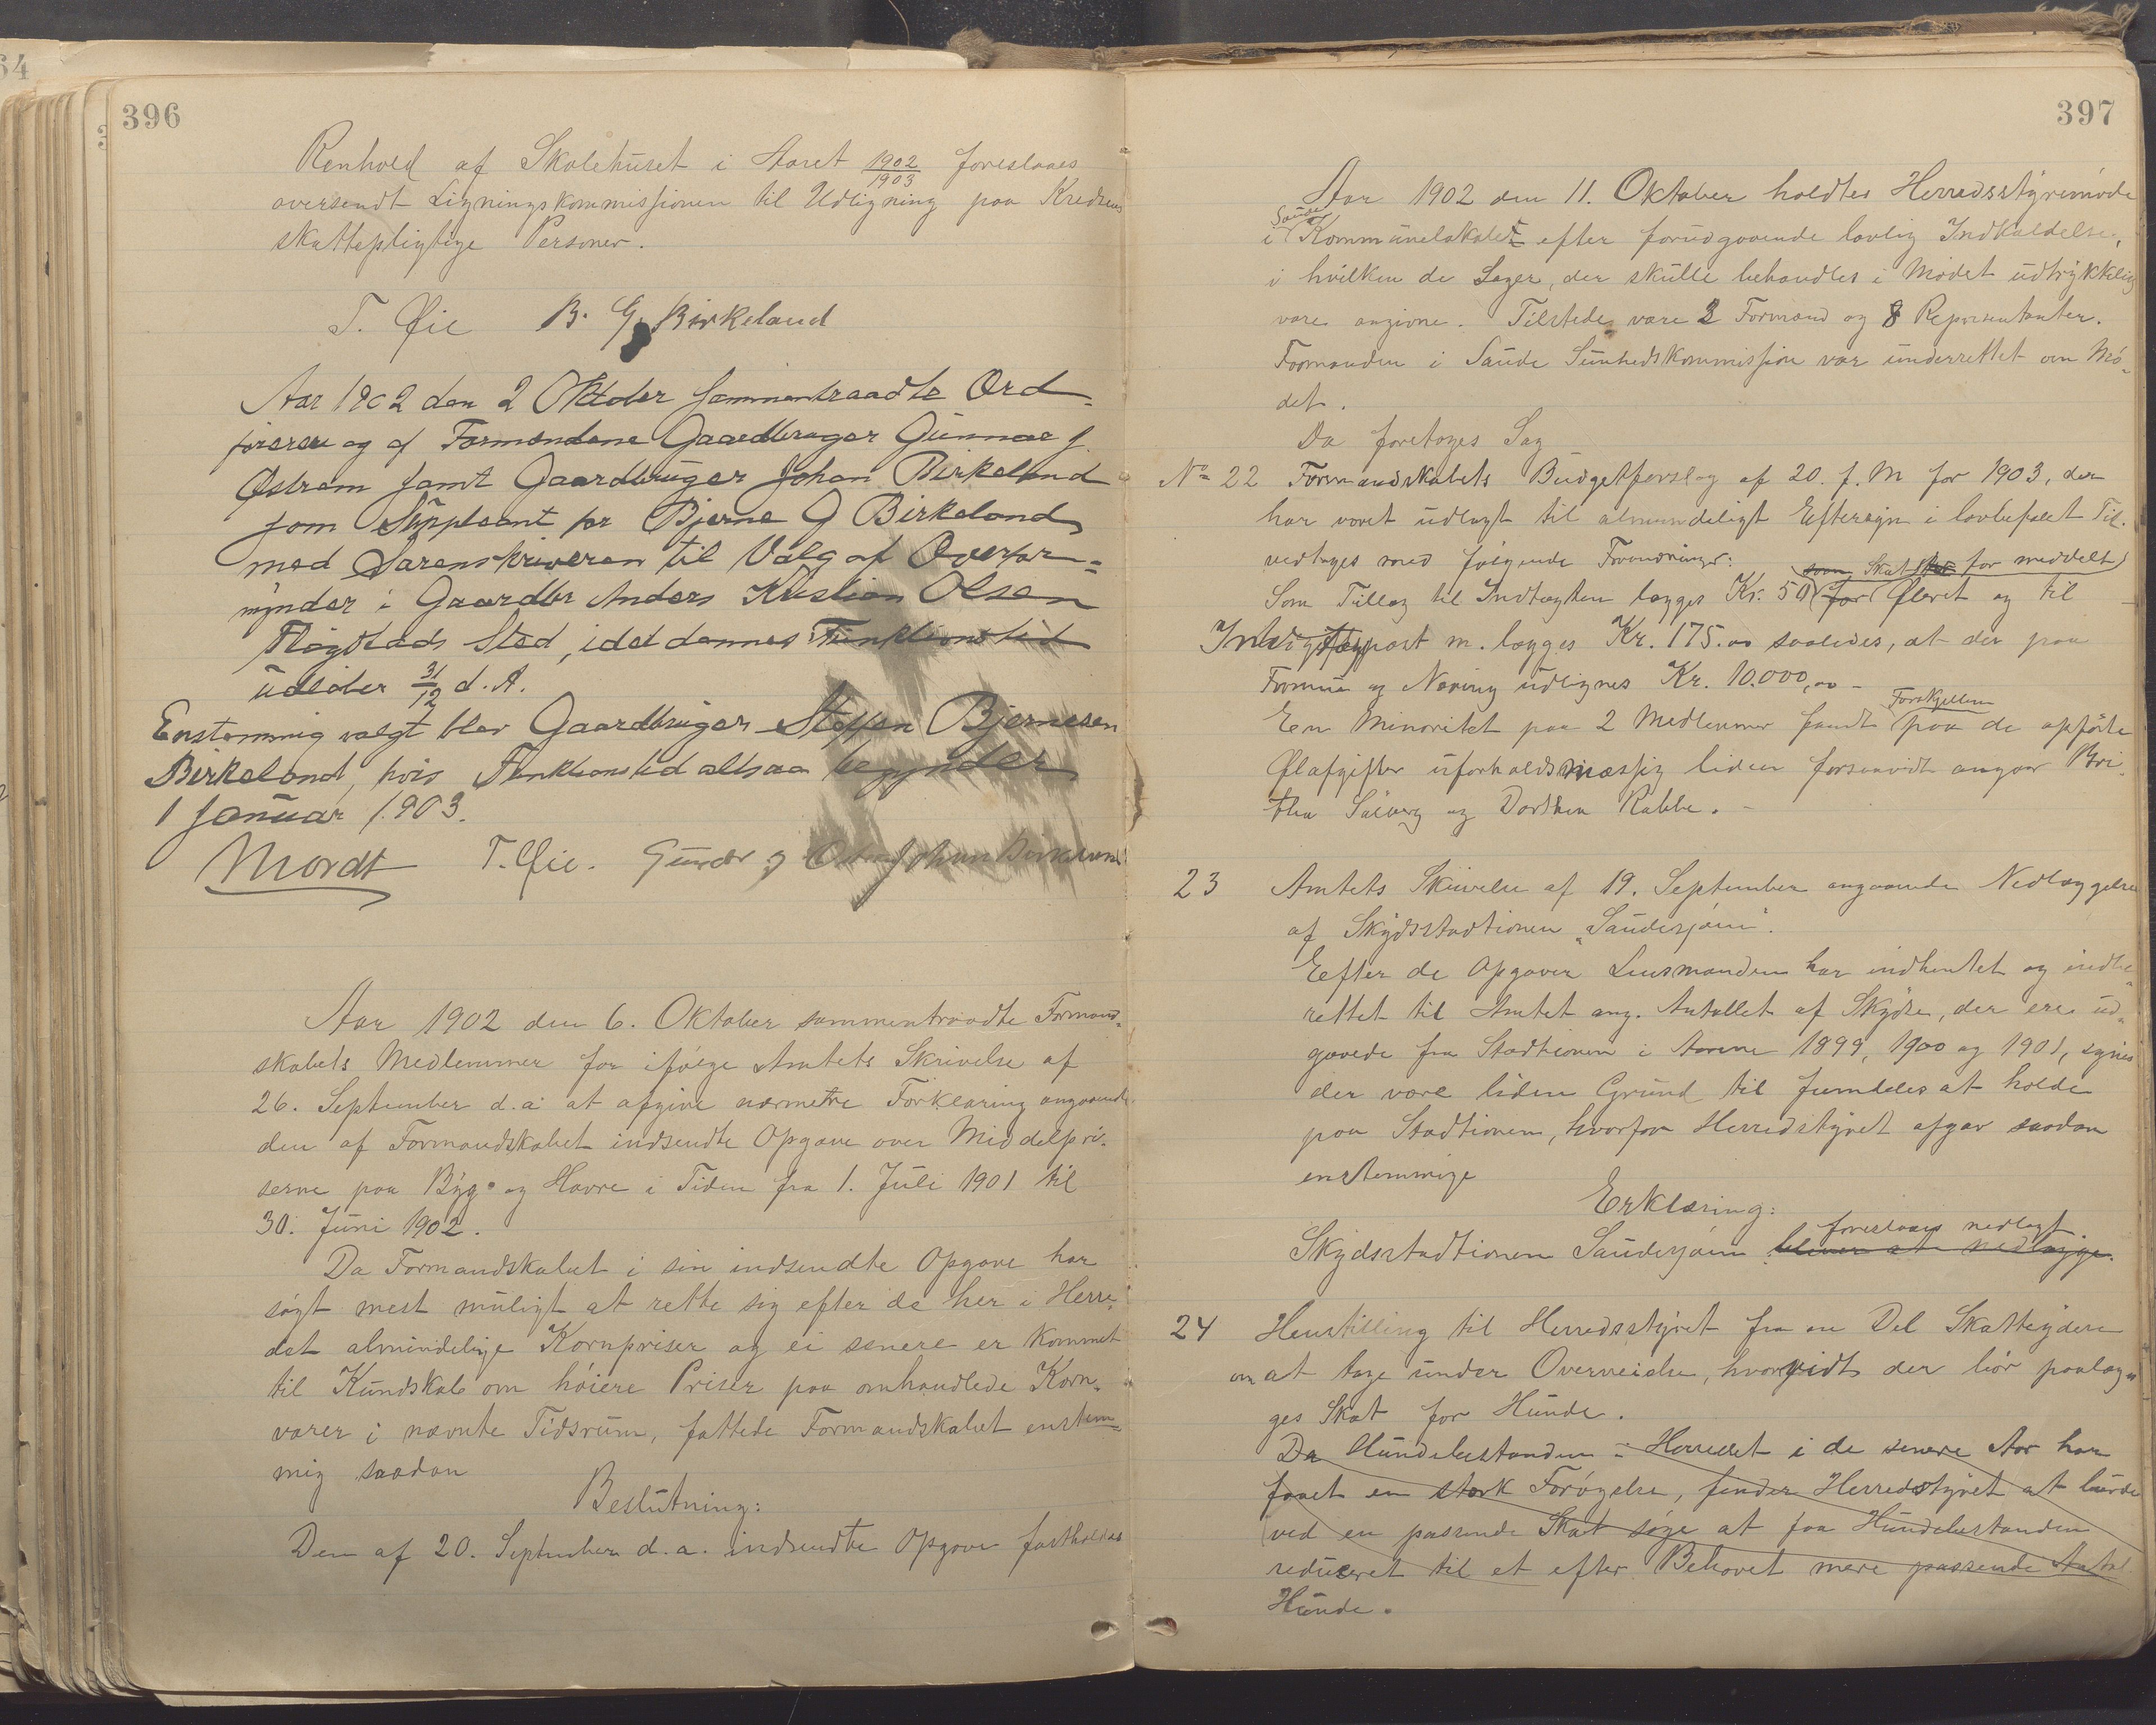 396
Renhold af Skolehuset i Aaret 1902/1903 foreslaaes
oversendt Ligningskommissionen til Udligning paa Kredsens
skattepligtige Personer.
T. Øie B. G. Birkeland
Aar 1902 den 2 Oktober sammentraadte Ord-
føreren og af Formændene Gaardbruger Gunnar J.
Østrem samt Gaardbruger Johan Birkeland
som Suppleant for Bjerne G Birkeland
med Sorenskriveren til Valg af Overfor=
mynder i Gaardbr Anders Kristian Olsen
Fløgstads Sted, idet dennes Funktionstid
udløber 31/12 d. A.
Enstemmig valgt blev Gaardbruger Steffen Bjernesen
Birkeland, hvis Funktionstid altsaa begynder
1 Januar 1903.
Mordt T. Øie. Johan Birkeland
Aar 1902 den 6. Oktober sammentraadte Formand-
skabets Medlemmer for ifølge Amtets Skrivelse af
26. September d.a. at afgive nærmere Forklaring angaaende
den af Formandskabet indsendte Opgave over Middelpri-
serne paa Byg og Havre i Tiden fra 1. Juli 1901 til
30. Juni 1902.
Da Formandskabet i sin indsendte Opgave har
søgt mest muligt at rette sig efter de her i Herre-
det almindelige Kornpriser og ei senere er kommet
til Kundskab om høiere Priser paa omhandlede Korn-
varer i nævnte Tidsrum, fattede Formandskabet enstem-
mig saadan
Beslutning:
Den af 20. September d.a. indsendte Opgave fastholdes
397
Aar 1902 den 11. Oktober holdtes Herredsstyremøde
i Saude Kommunelokale efter forudgaaende lovlig Indkaldelse,
i hvilken de Sager, der skulle behandles i Mødet udtrykkelig
vare angivne. Tilstede vare 3 Formænd og 8 Repræsentanter.
Formanden i Saude Sundhedskommission var underrettet om Mø-
det.
Da foretoges Sag
No 22 Formandskabets Budgetforslag af 20. f. M for 1903, der
har været udlagt til almindeligt Eftersyn i lovbefalet Tid.
vedtages med følgende Forandringer:
som Skat for meddelt
Som Tillæg til Indtægten lægges Kr. 50 for Ølret og til
Indtægtspost m. lægges Kr. 175.00 saaledes, at der paa
Formue og Næring udlignes Kr. 10.000,00 -
En Minoritet paa 2 Medlemmer fandt Forskjellen paa de opførte
Ølafgifter uforholdsmæssig liden forsaavidt angaar Bri-
tha og Dorthea Rabbe. -
23 Amtets Skrivelse af 19. September angaaende Nedlæggelse
af Skydsstadtionen "Saudesjøen".
Efter de Opgaver Lensmanden har indhentet og indbe-
rettet til Amtet ang. Antallet af Skydse, der ere ud-
gaaede fra Stadtionen i Aarene 1899, 1900 og 1901, synes
der være liden Grund til fremdeles at holde
paa Stadtionen, hvorfor Herredstyret afgav saadan
enstemmige
Erklæring:
Skydsstadtionen Saudesjøen bliver at nedlægge. foreslaaes nedlagt
24 Henstilling til Herredsstyret fra en Del Skatteydere
om at tage under Overveielse, hvorvidt der bør paalæg-
ges Skat for Hunde.
Da Hundebestanden i Herredet i de senere Aar har
faaet en stærk Forøgelse, finder Herredstyret at burde
ved en passende Skat søge at faa Hundebestanden
reduceret til et efter Behovet mere passende Antal
Hunde.